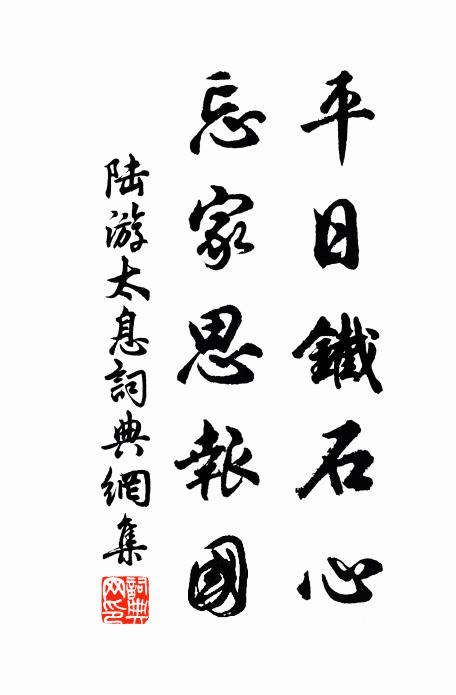 平日鐵石心
忘家思報國
陸游太息詞典網集
詞典網印